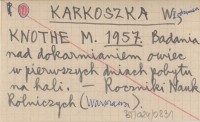 KARKOSZKA W
KNOTHE M. 1957 Badania
nad dokarmianiem owiec
w pierwszych dniach pobytu
na hali. – Roczniki Nauk
Rolniczych (Warszawa).